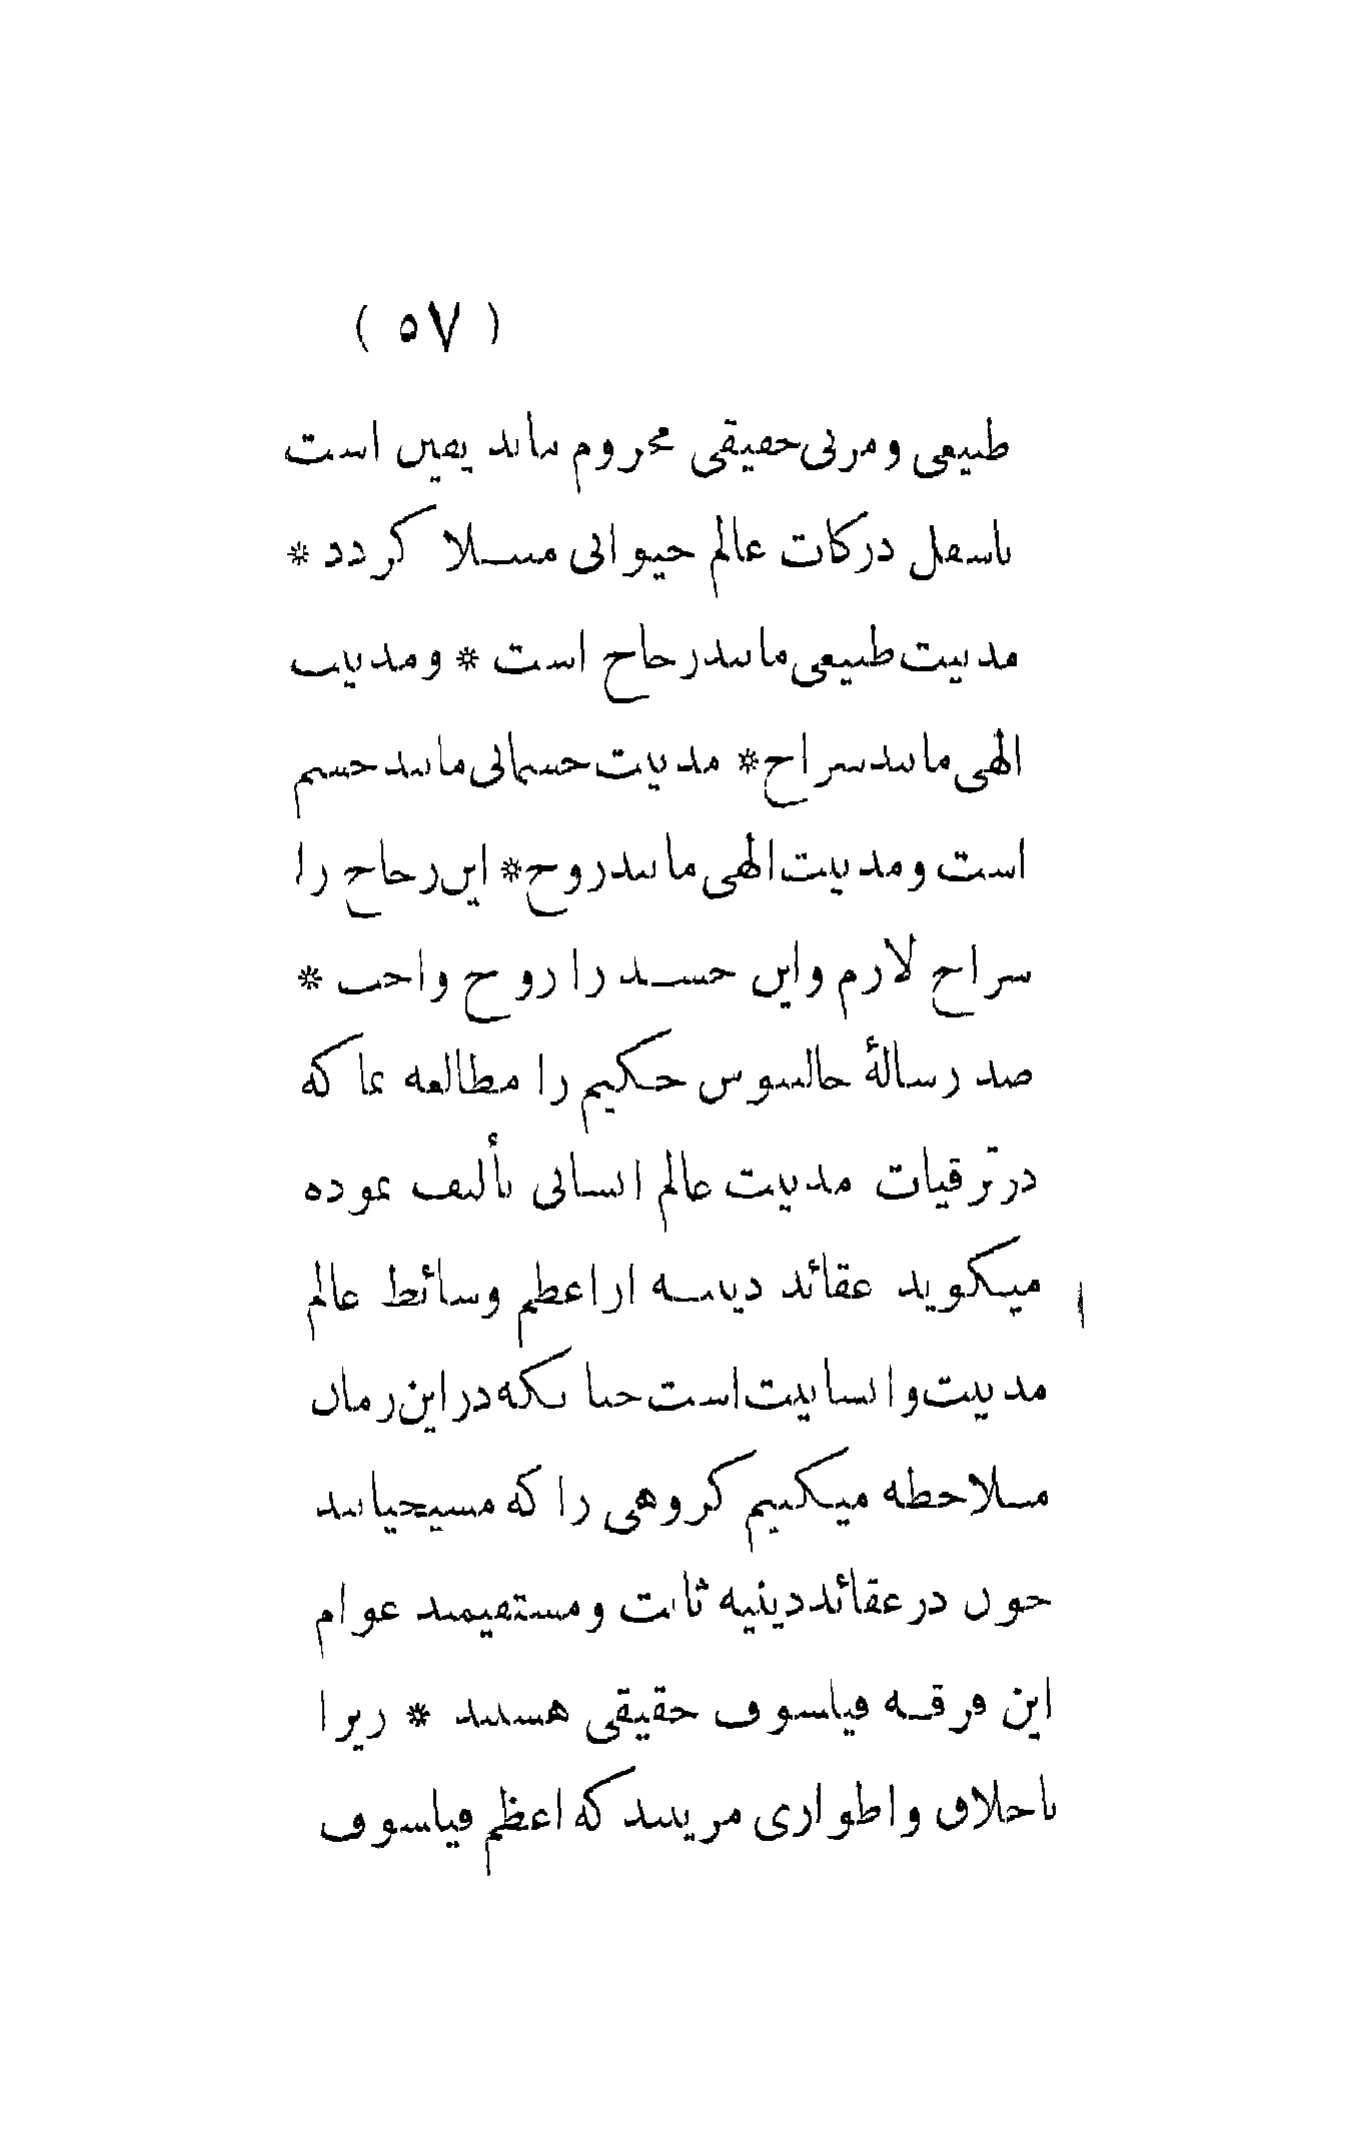 ( ٥٧ )
طبیعی و مربی حقیقی محروم ماند یقین است
باسفل درکات عالم حیوانی مبتلا کردد *
مدنیت طبیعی مانند زجاج است * و مدنیت
الهی مانند سراج * مدنیت جسمانی مانند جسم
است و مدنیت الهی مانند روح * این زجاج را
سراج لازم و این جسد را روح واجب *
صد رسالهٔ جالینوس حکیم را مطالعه نما که
در ترقیات مدنیت عالم انسانی تألیف نموده
میکوید عقائد دینیه از اعظم وسائط عالم
مدنیت و انسانیت است چنانکه در این زمان
ملاحظه میکنیم کروهی را که مسیحیانند
چون در عقائد دینیه ثابت و مستقیمند عوام
این فرقه فیلسوف حقیقی هستند * زیرا
باخلاق و اطواری مزینند که اعظم فیلسوف